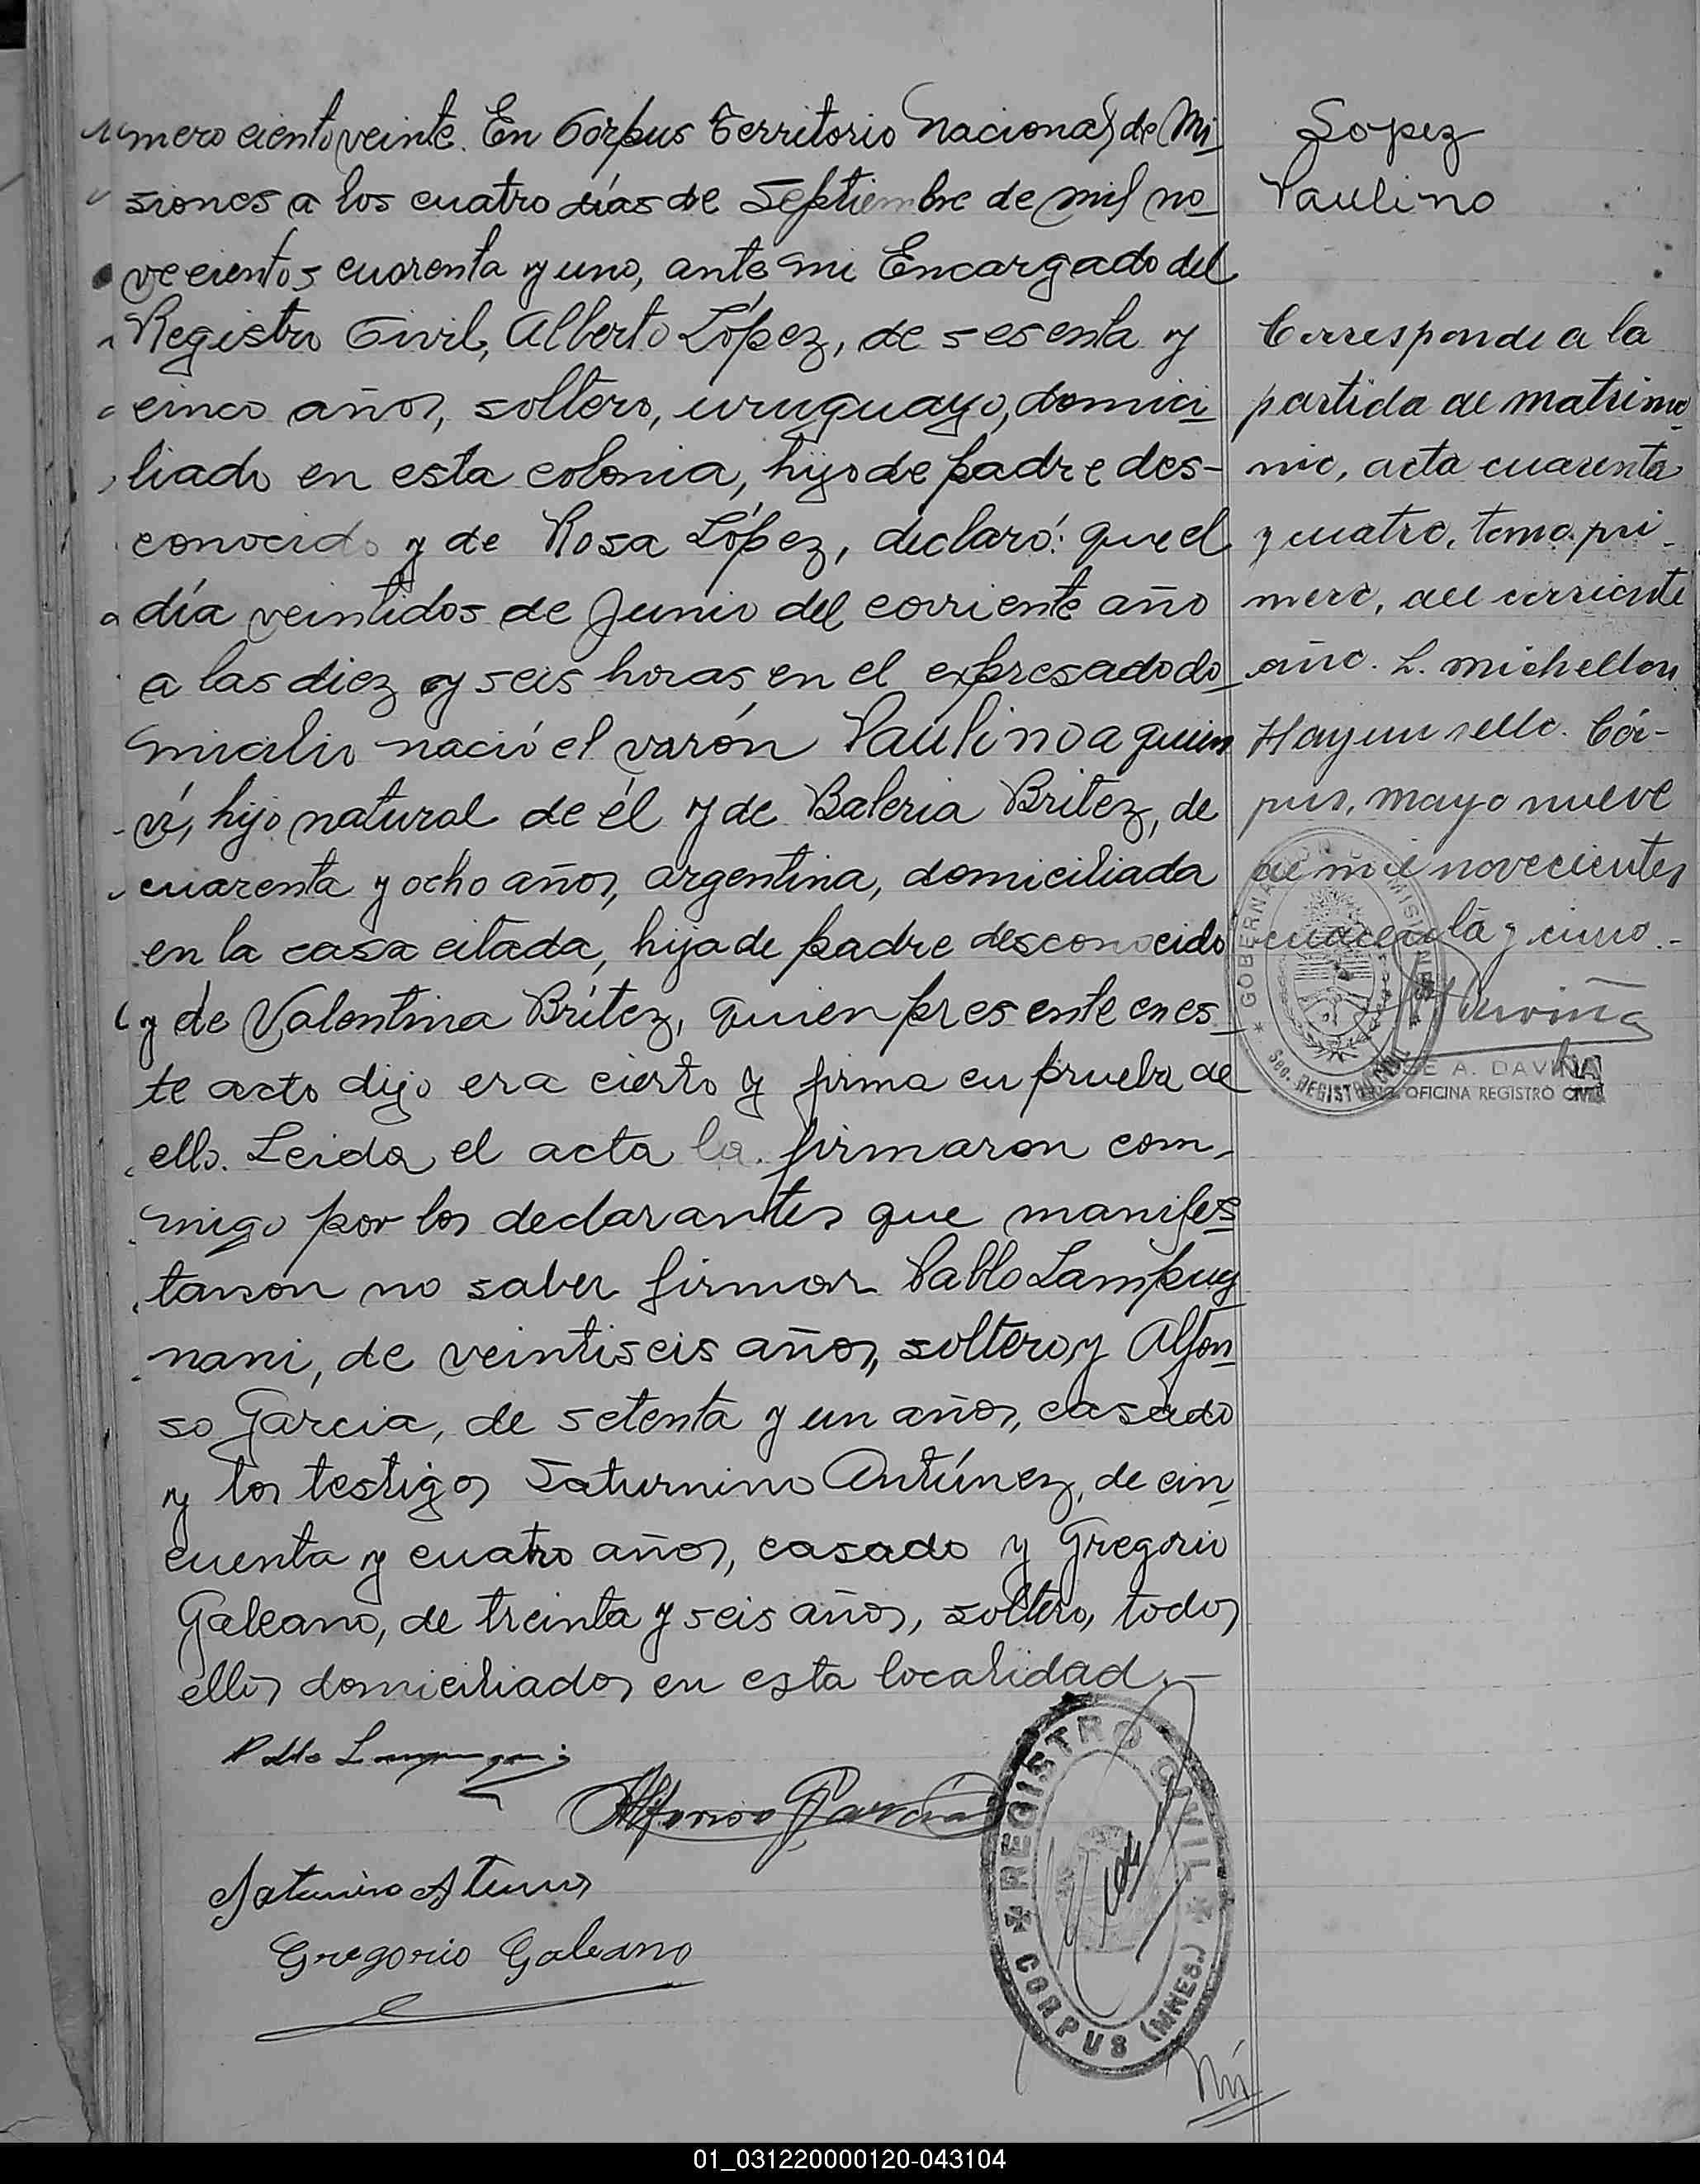 Número ciento veinte. En Corpus Territorio Nacional de Mi-
siones a los cuatro días de Septiembre de mil no-
vecientos cuarenta y uno, ante mi Encargado del
Registro Civil, Alberto López, de sesenta y
cinco años, soltero, uruguayo, domici-
liado en esta colonia, hijo de padre des-
conocido y de Rosa López, declaró: que el
día veintidos de Junio del corriente año
a las diez y seis horas, en el expresado do-
micilio nació el varón Paulino a quien
ví, hijo natural de él y de Baleria Britez, de
cuarenta y ocho años, argentina, domiciliada
en la casa citada, hija de padre desconocido
y de Valentina Brítez, quien presente en es-
te acto dijo era cierto y firma en prueba de
ello. Leida el acta la firmaron con-
migo por los declarantes que manifes-
taron no saber firmar Pablo Lampug-
nani, de veintiseis años, soltero y Alfon-
so Garcia, de setenta y un años, casado
y los testigos Saturnino Antúnez, de cin-
cuenta y cuatro años, casado y Gregorio
Galeano, de treinta y seis años, soltero, todos
ellos domiciliados en esta localidad.-
Alfonso Garcia
Gregorio Galeano
REGISTRO CIVIL
CORPUS (MNES.)
Lopez
Paulino
Corresponde a la
partida de matrimo-
nio, acta cuarenta
y cuatro, tomo pri-
mero, del corriente
año. L. Michellon
Hay un sello. Cór-
pus, mayo nueve
de mil novecientos
cuarenta y cinco.-
GOBERNACION DE MISIONES
Sec. REGISTRO CIVIL
JOSE A. DAVIÑA
OFICINA REGISTRO CIVIL
01_031220000120-043104